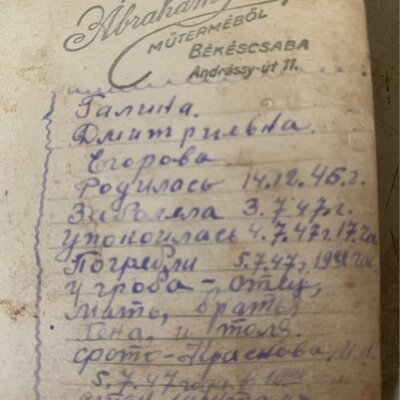 Abraham
MŰTERMÉBŐL
BÉKÉSCSABA
Andrássy-út 11.
Галина.
Дмитриевна.
Егорова.
Родилась 14.12.46.г.
Заболела 3.7.47г.
упокоилась 4.7.47г. 17.ча
Погребли 5.7.47г.
У гроба - отец,
мать, братья
Гена, и Толя.
фото - Краснова.
5.7.47